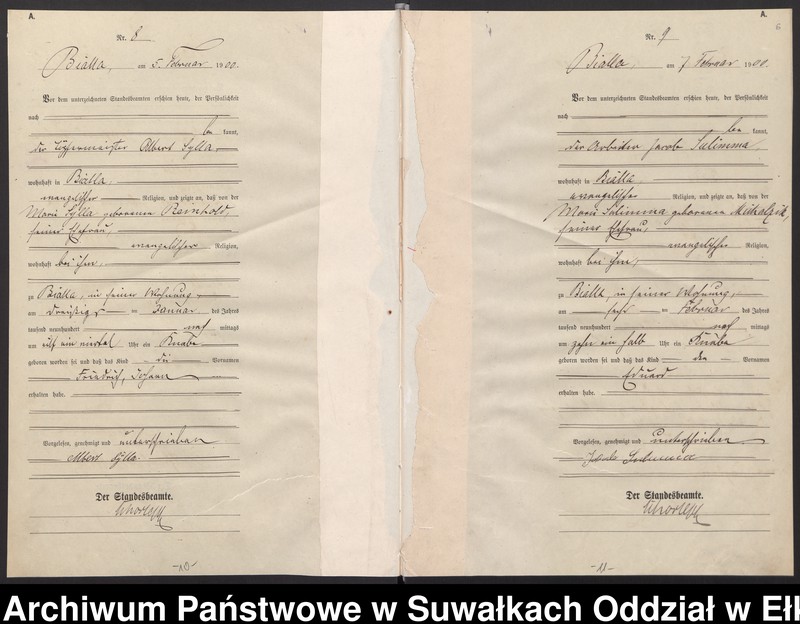 A.
Nr. 8
Bialla, am 5. Februar 1900.
Vor dem unterzeichneten Standesbeamten erschien heute, der Persönlichkeit
nach
be kannt,
der Töpfermeister Albert Sylla
wohnhaft in Bialla
evangelischer Religion, und zeigte an, daß von der
Marie Sylla geborenen Reinhold,
seiner Ehefrau,
evangelischer Religion,
wohnhaft bei ihm,
zu Bialla, in seiner Wohnung,
am dreißigs ten Januar des Jahres
tausend neunhundert nach mittags
um elf ein viertel Uhr ein Knabe
geboren worden sei und daß das Kind die Vornamen
Friedrich, Johann
erhalten habe.
Vorgelesen, genehmigt und unterschrieben
Albert Sylla.
Der Standesbeamte.
-10-
A.
6
Nr. 9
Bialla, am 7. Februar 1900.
Vor dem unterzeichneten Standesbeamten erschien heute, der Persönlichkeit
nach
be kannt,
der Arbeiter Jacob Salimma,
wohnhaft in Bialla
evangelischer Religion, und zeigte an, daß von der
Marie Salimma geborenen
seiner Ehefrau,
evangelischer Religion,
wohnhaft bei ihm,
zu Bialla, in seiner Wohnung,
am sechs ten Februar des Jahres
tausend neunhundert nach mittags
um zehn ein halb Uhr ein Knabe
geboren worden sei und daß das Kind den Vornamen
Eduard
erhalten habe.
Vorgelesen, genehmigt und unterschrieben
Der Standesbeamte.
-11-
Archiwum Państwowe w Suwałkach Oddział w Ełk